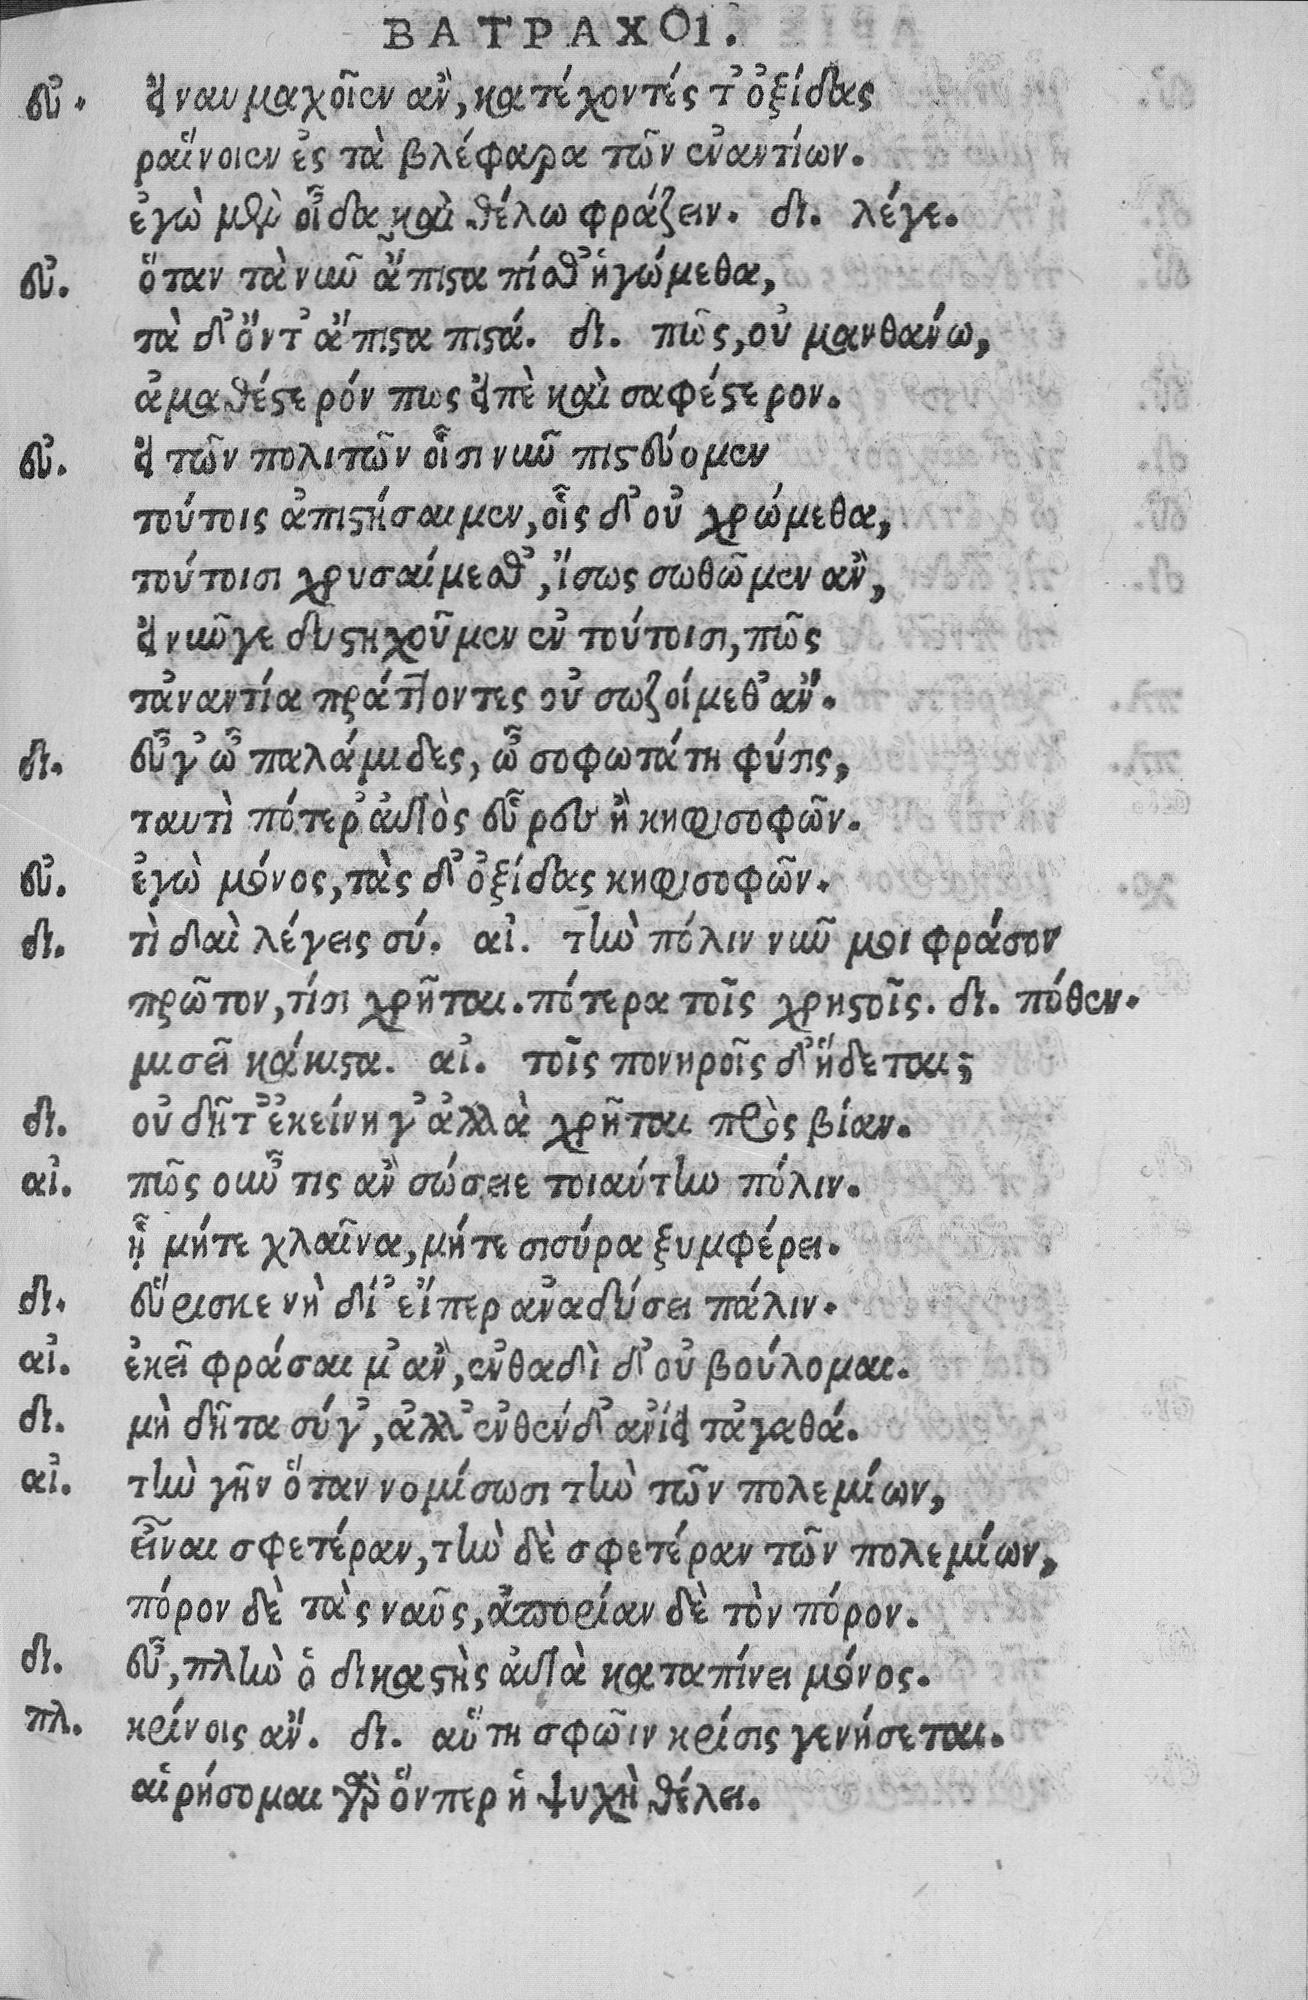 ΒΑΤΡΑΧΟΙ.
εὐ. εἰ ναυμαχοῖεν ἂν, κατέχοντές τ' ὀξίδας
ραίνοιεν ἐς τὰ βλέφαρα τῶν ἐναντίων.
ἐγὼ μὲν οἶδα καὶ θέλω φράζειν. δι. λέγε.
εὐ. ὅταν τὰ νῦν ἄπιστα πίσθ' ἡγώμεθα,
τὰ δ' ὄντ' ἄπιστα πιστά. δι. πῶς, οὐ μανθάνω,
ἀμαθέστερόν πως εἰπὲ καὶ σαφέστερον.
εὐ. εἰ τῶν πολιτῶν οἷσι νῦν πιστεύομεν
τούτοις ἀπιστήσαιμεν, οἷς δ' οὐ χρώμεθα,
τούτοισι χρυσαίμεσθ', ἴσως σωθῶμεν ἂν,
εἰ νῦν γε δυστηχοῦμεν ἐν τούτοισι, πῶς
τἀναντία πράττοντες οὐ σωζοίμεθ' ἄν.
δι. εὖγ' ὦ παλάμιδες, ὦ σοφωτάτη φύσις,
ταυτὶ πότερ' αὐτὸς εὗρες ἢ κηφισοφῶν.
εὐ. ἐγὼ μόνος, τὰς δ' ὀξίδας κηφισοφῶν.
δι. τὶ δαὶ λέγεις σύ. αἰ. τὴν πόλιν νῦν μοι φράσον
πρῶτον, τίσι χρῆται. πότερα τοῖς χρηστοῖς. δι. πόθεν.
μισεῖ κάκιστα. αἰ. τοῖς πονηροῖς δ' ἥδεται;
δι. οὐ δῆτ' ἐκείνη γ' ἀλλὰ χρῆται πρὸς βίαν.
αἰ. πῶς οὖν τις ἂν σώσειε τοιαύτην πόλιν.
ᾗ μήτε χλαῖνα, μήτε σισύρα ξυμφέρει.
δι. εὕρισκε νὴ δί' εἴπερ ἀναδύσει πάλιν.
αἰ. ἐκεῖ φράσαι μ' ἂν, ἐνθαδὶ δ' οὐ βούλομαι.
δι. μὴ δῆτα σύγ', ἀλλ' ἐνθένδ' ἀνίει τἀγαθά.
αἰ. τὴν γῆν ὅταν νομίσωσι τὴν τῶν πολεμίων,
εἶναι σφετέραν, τὴν δὲ σφετέραν τῶν πολεμίων,
πόρον δὲ τὰς ναῦς, ἀπορίαν δὲ τὸν πόρον.
δι. εὖ, πλὴν ὁ δικαστὴς αὐτὰ καταπίνει μόνος.
πλ. κρίνοις ἄν. δι. αὕτη σφῶιν κρίσις γενήσεται.
αἱρήσομαι γὰρ ὅνπερ ἡ ψυχὴ θέλει.